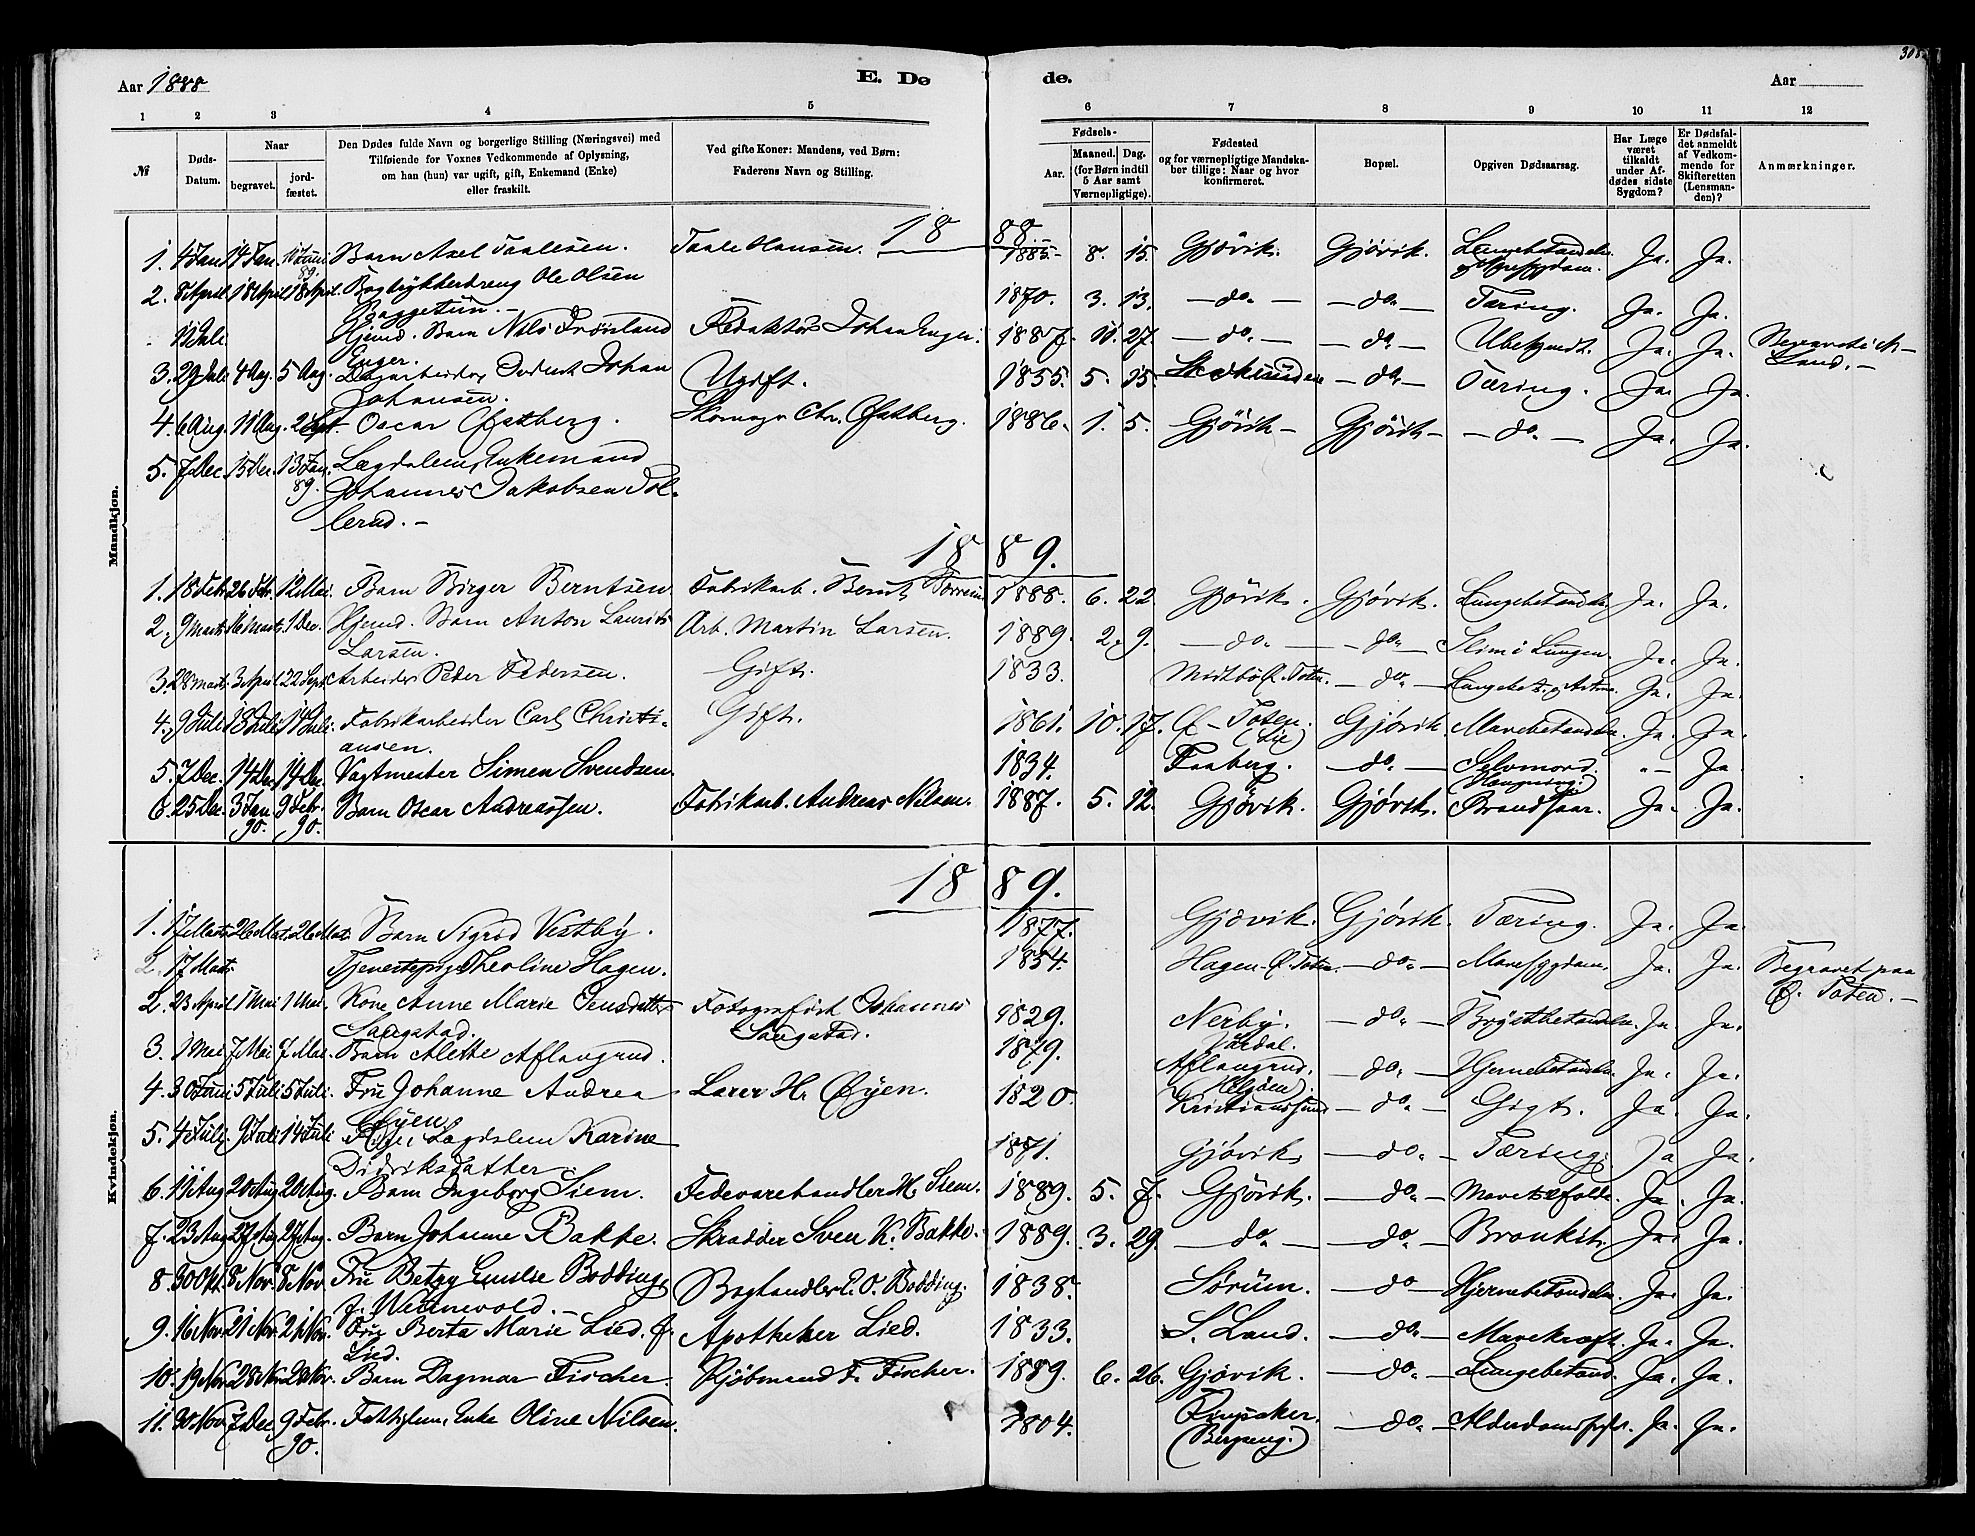 308.
Aar 1888 E. Dø de. Aar
1 2 3 4 5 6 7 8 9 10 11 12
№
Døds-Datum.
Naar
begravet.
jord-fæstet.
Den Dødes fulde Navn og borgerlige Stilling (Næringsvei) med
Tilføiende for Voxnes Vedkommende af Oplysning,
om han (hun) var ugift, gift, Enkemand (Enke)
eller fraskilt.
Ved gifte Koner: Mandens, ved Børn:
Faderens Navn og Stilling.
Fødsels-
Aar.
Maaned. Dag.
(for Børn indtil
5 Aar samt
Værnepligtige).
Fødested
og for værnepligtige Mandska-
ber tillige: Naar og hvor
konfirmeret.
Bopæl.
Opgiven Dødsaarsag.
Har Læge
været
tilkaldt
under Af-
dødes sidste
Sygdom?
Er Dødsfal-
det anmeldt
af Vedkom-
mende for
Skifteretten
(Lensman-
den)?
Anmærkninger.
Mandkjøn.
18 88
1. 4 Jan 14 Jan. Barn Axel Paalesen. Paale Hansen. 1885. 8. 15. Gjøvik. Gjøvik. Ja. Ja.
89.
2. 8 April. 18 April 18 April. Bogtrykkerdreng Ole Olsen 1870. 3. 13. — do. — — do. — Tæring. Ja. Ja.
Baggetun. —
11 Juli. Hjemd. Barn Nils Frøisland Redaktør Johan Enger. 1887. 11. 27. — do. — — do. — Ubekjendt. Ja. Ja. Begravet i N-
Enger. Land. —
3. 29 Juli 4 Aug. 5 Aug. Dagarbeider Johan Ugift. 1855. 5. 15. — do — Tæring. Ja. Ja.
Johansen.
4. 6 Aug. 11 Aug. 2 Sept. Oscar Østberg. Skomager Chr. Østberg. 1886. 1. 5. Gjövik — Gjövik — — do. — Ja. Ja.
5. 7 Dec 15 Dec. 13 Jan. Lægdslem, Enkemand
89. Johannes Jakobsen Tol-
lerud. —
18 89.
1. 18 Febr. 26 Febr. 12 Mai. Barn Birger Berntsen Fabrikarb. Bernt 1888. 6. 22 Gjøvik. Gjøvik. Lungebetændelse Ja. Ja.
2. 9 Marts 16 Marts. 1 Dec. Hjemd. Barn Anton Laurits Arb. Martin Larsen. 1889. 2. 9. — do. — — do. — Slim i Lungen. Ja. Ja.
Larsen.
3. 28 Marts. 3 April 22 Sept. Arbeider Peder Pedersen. Gift. 1833. Ø. Toten. — do. — Ja. Ja.
4. 9 Juli 13 Juli 14 Juli. Fabrikarbeider Carl Christi- Gift. 1861. 10. 17. Ø — Toten. Gjøvik Mavebetændelse. Ja. Ja.
ansen. (Lie)
5. 7 Dec. 14 Dec. 14 Dec. Vagtmester Simen Svendsen. 1834. Faaberg. — do. — Selvmord. " — Ja.
(Hængning)
6. 25 Dec. 3 Jan. 9 Febr. Barn Oscar Andreassen. Fabrikarb. Andreas Nilsen. 1887. 5. 12. Gjøvik. Gjøvik. Brandsaar. Ja. Ja.
90. 90.
Kvindekjøn.
18 89.
1. 17 Marts. 26 Mar. 26 Mar. Barn Sigrid Vestby. 1877. Gjøvik. Gjøvik. Tæring. Ja. Ja.
2. 17 Marts Tjenestepige Theoline Hagen. 1854. Hagen Ø. Toten. — do. — Mavesygdom. Ja. Ja. Begravet paa
Ø. Toten. —
2. 23 April 1 Mai 1 Mai. Kone Anne Marie Jensdatter Fotografist Johannes 1829. Nerby. — do. — Brystbetændelse. Ja. Ja.
Saugstad. Saugstad. Vardal.
3. 1 Mai 7 Mai 7 Mai. Barn Alette Aflangrud. 1879. Aflangrud. — do. — Hjernebetændelse. Ja. Ja.
4. 30 Juni 5 Juli 5 Juli. Fru Johanne Andrea Lærer H. Øyen. 1820. Kristianssund — do. — Gigt. Ja. Ja.
Øyen.
5. 4 Juli. 9 Juli 14 Juli Lægdslem Karine 1871. Gjøvik — do. — Tæring. Ja Ja.
Didriksdatter.
6. 11 Aug 20 Aug 20 Aug. Barn Ingeborg Siem. Fedevarehandler M. Siem. 1889. 5. 7. Gjøvik. — do. — Ja. Ja.
7. 23 Aug 27 Aug 27 Aug. Barn Johanne Bakke. Skrædder Sven K. Bakke. 1889. 3. 29. — do. — — do. — Bronkit. Ja. Ja.
8. 30 Okt. 8 Nov. 8 Nov. Fru Betzy Emilie Bødding Boghandler C. O. Bødding. 1838. Sørum. — do — Hjernebetændelse. Ja. Ja.
9. 16 Nov. 21 Nov. 21 Nov. Fru Berta Marie Lied. f. Apotheker Lied. 1833. S. Land. — do. — Mavekræft. Ja. Ja.
Lied.
10. 19 Nov 28 Nov 28 Nov. Barn Dagmar Fischer. Kjøbmand F. Fischer. 1889. 6. 26. Gjøvik. — do. — Lungebetænd. Ja. Ja.
11. 30 Nov. 7 Dec. 9 Febr. Fattiglem, Enke Oline Nilsen. 1804. Ringsaker. — do. — Ja. Ja.
90. (Bergseng.)